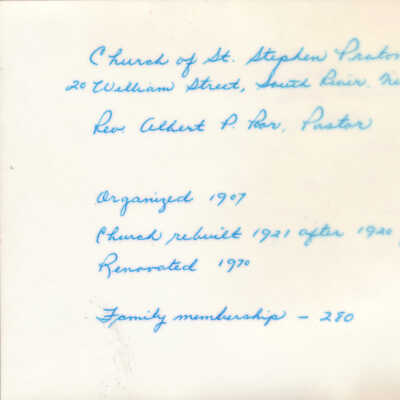 Church of St. Stephen Proto
20 William Street, South River, Ne
Rev. Albert P. Por, Pastor
Organized 1907
Church rebuilt 1921 after 1920
Renovated 1970
Family membership - 280